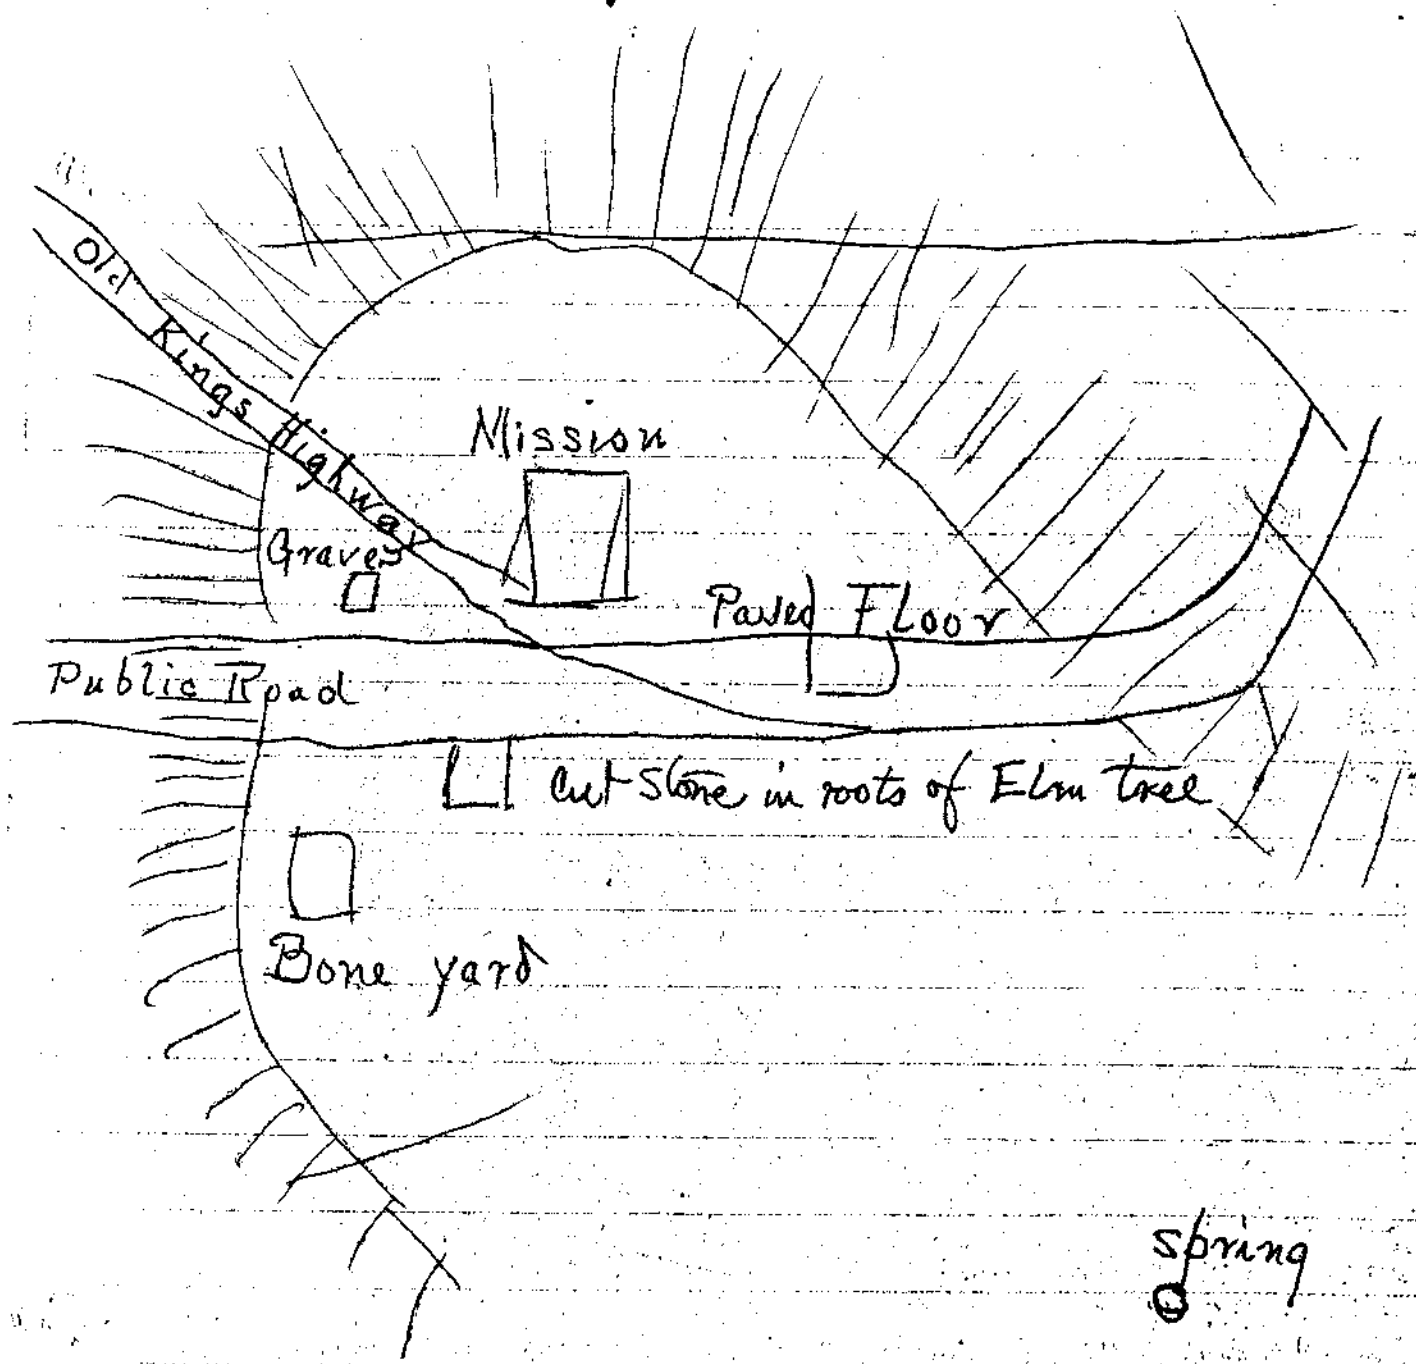 Old Kings Highway
Mission
Graves
Paved Floor
Public Road
Cut Stone in roots of Elm tree
Bone yard
Spring